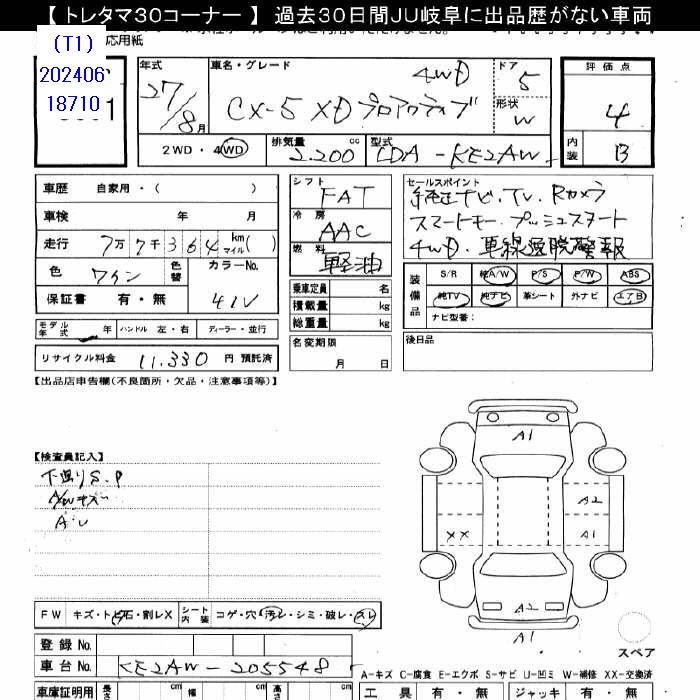 【 トレタマ30コーナー 】 過去30日間JU岐阜に出品歴がない車両
(T1)
202406
18710
応用紙
年式 27/8月
車名・グレード 4WD
CX-5 XD プロアクティブ
ドア 5
形状 W
評価点 4
内装 B
2WD・4WD 排気量 2.200 cc 型式 LDA-KE2AW
車歴 自家用・( )
車検 年 月
走行 7万7千364 km マイル( )
色 ワイン 色替 カラーNo. 41V
保証書 有・無
モデル年式 年 ハンドル 左・右 ディーラー・並行
リサイクル料金 11.330 円 預託済
シフト FAT
冷房 AAC
燃料 軽油
乗車定員 名
積載量 kg
総重量 kg
名変期限
月 日
セールスポイント
純正ナビ・TV・Rカメラ
スマートキー プッシュスタート
4WD・車線逸脱警報
装備品 S/R 純A/W P/S P/W ABS
純TV 純ナビ 革シート 外ナビ エアB
ナビ型番：
後日品
【出品店申告欄(不良箇所・欠品・注意事項等)】
【検査員記入】
下廻りS.P
A/Wキズ
A・U
A1
A2
XX
A1
A2
A1
スペア
FW キズ・トビ石・割レX シート内装 コゲ・穴・汚レ・シミ・破レ・スレ
登録No.
車台No. KE2AW-205548
A-キズ C-腐食 E-エクボ S-サビ U-凹ミ W-補修 XX-交換済
車庫証明用 長さ cm 幅 cm 高さ cm
工具 有・無 ジャッキ 有・無